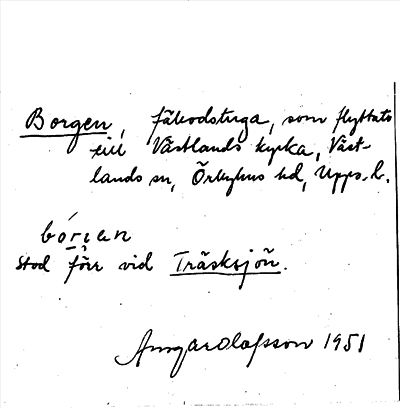 Borgen, fäbodstuga, som flyttats
till Västlands kyrka, Väst-
lands sn, Örbyhus hd, Upps. l.
bórjan
Stod förr vid Träsksjön.
Ansgar Olofsson 1951